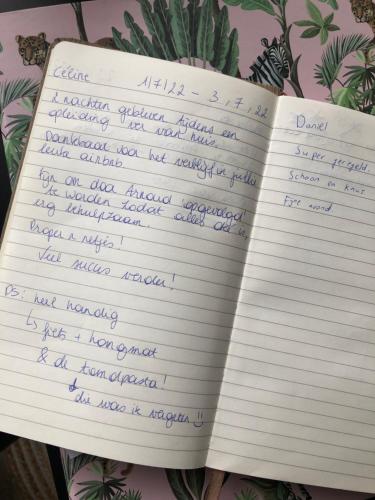 Céline 1/7/22 - 3,7,22
2 nachten gebleven tijdens een
opleiding ver van huis.
Dankbaar voor het verblijf in jullie
leuke airbnb.
Fijn om door Arnaud 'opgevolgd'
te worden zodat alles oké is,
erg behulpzaam.
Proper & netjes!
Veel succes verder!
PS: heel handig
↳ fiets + hangmat
& de tandpasta!
↳ die was ik vergeten :)
Daniel
Super gezellig.
Schoon en knus
Fijne avond